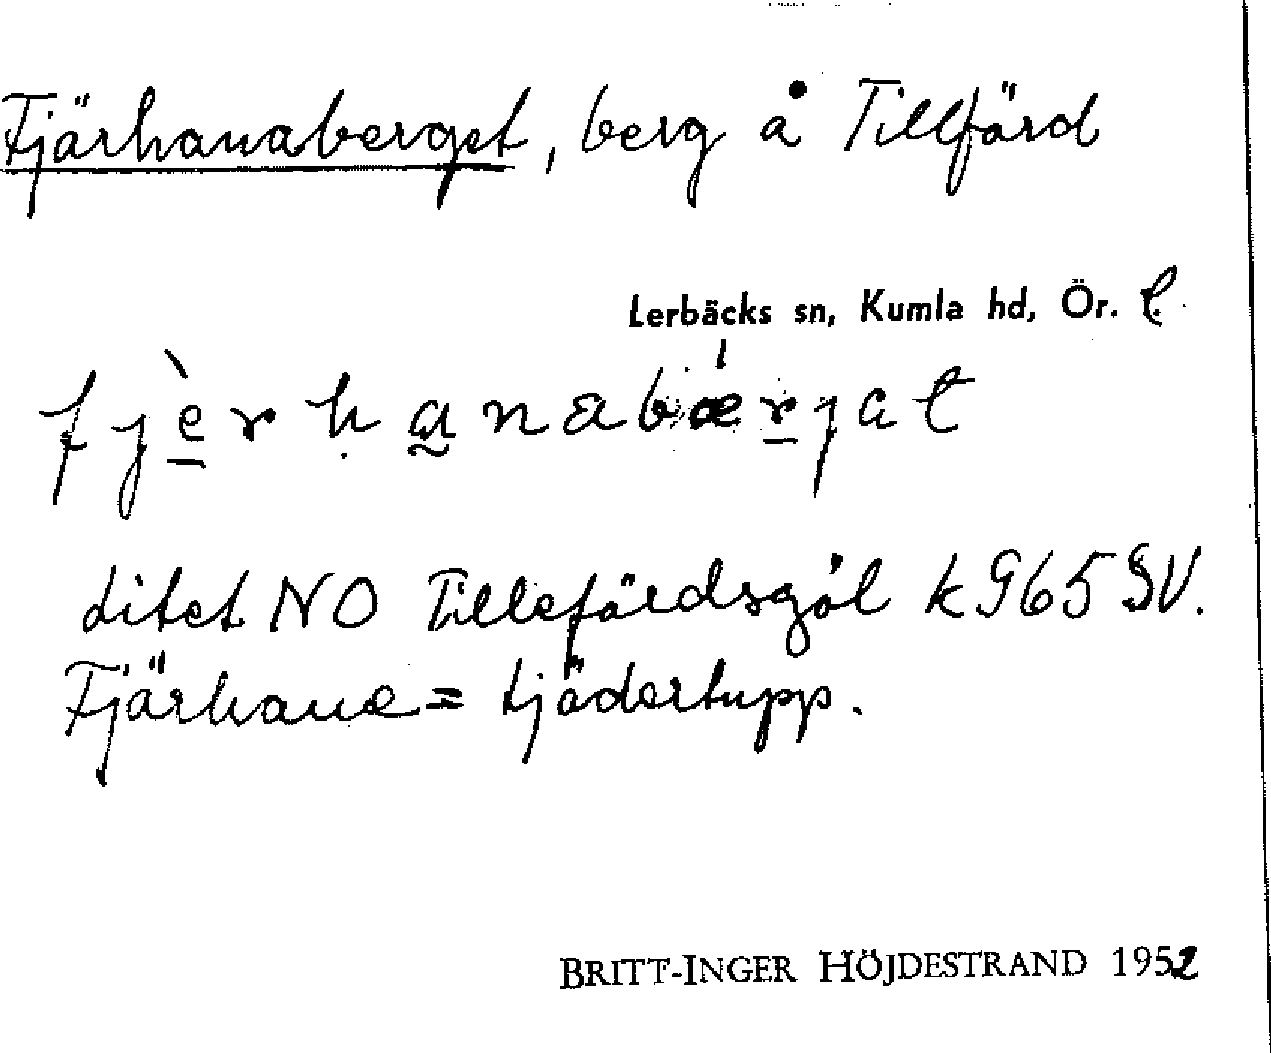 Fjärhanaberget, berg å Tillfärd
Lerbäcks sn, Kumla hd, Ör. l.
fjèrhanabǽrjat
Litet NO Tillefärdsgöl k 965 SV.
Fjärhane = tjädertupp.
BRITT-INGER HÖJDESTRAND 1952